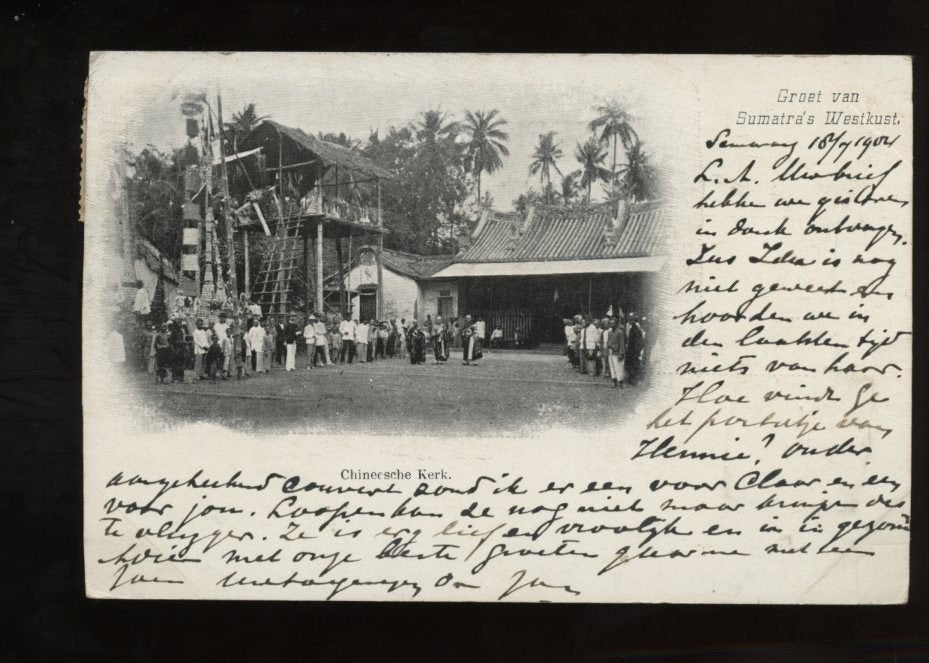 Groet van
Sumatra's Westkust.
Samarang 1904
L. A. Uw brief
hebben we gisteren
in dank ontvangen.
Zus Ida is nog
niet geweest en
hoorden we in
den laatsten tijd
niets van haar.
Hoe vindt ge
het portretje van
Hennie? onder
Chineesche Kerk.
couvert zond ik er een voor Claar en een
voor jou. Loopen kan ze nog niet maar kruipen des
te vlugger. Ze is erg lief en vroolijk en in in gezond
Adieu met onze beste groeten met een
zoen